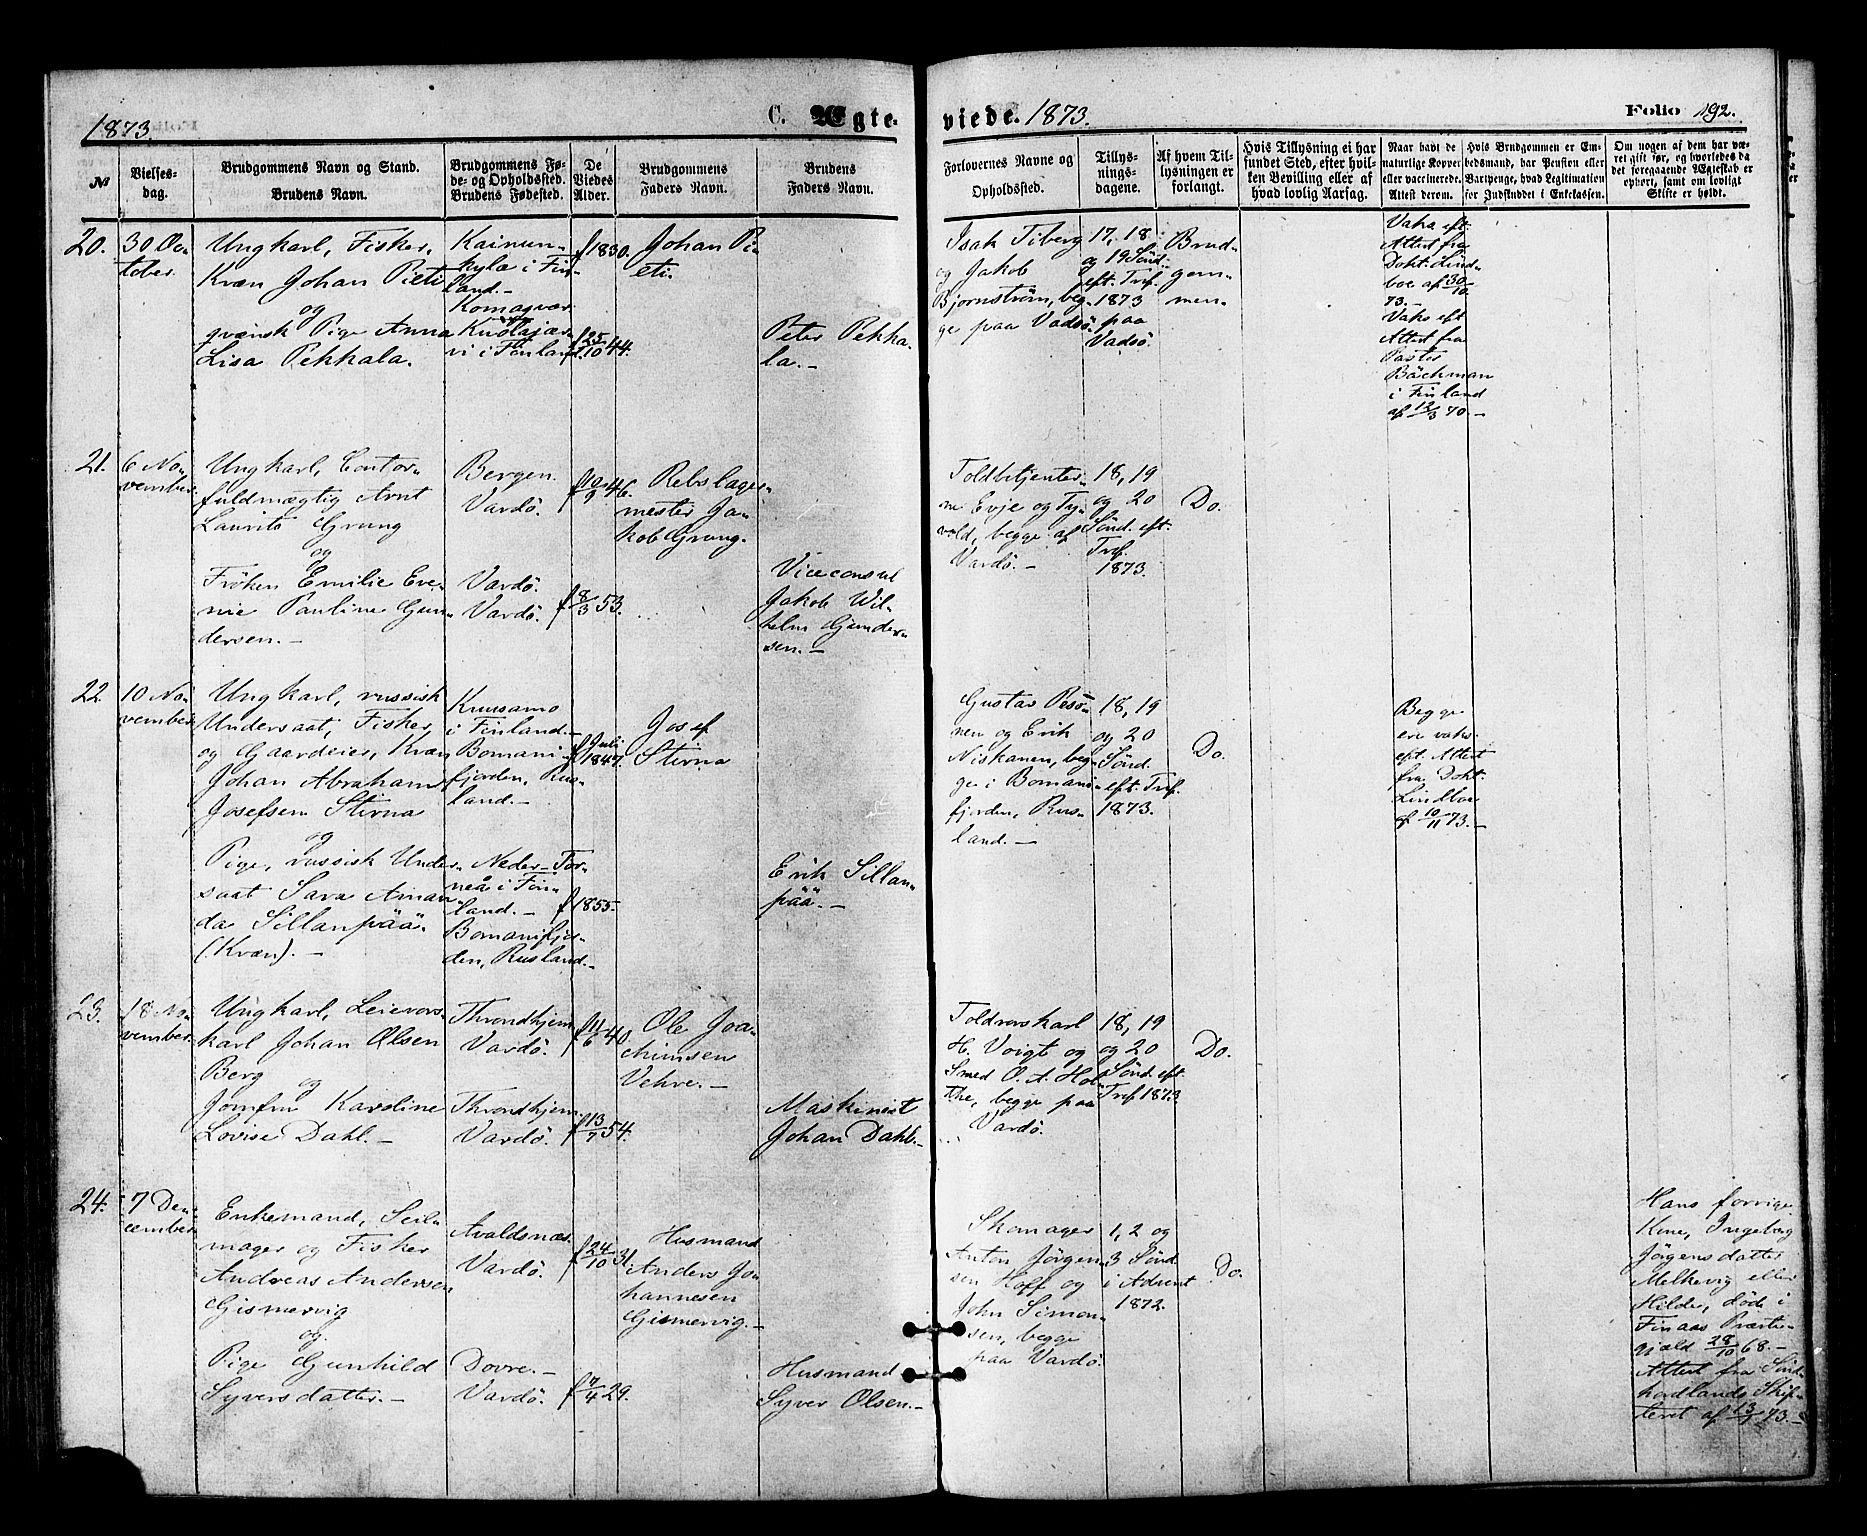 1873.
C. Ægte-
viede. 1873.
Folio 192.
№
Vielses-
dag.
Brudgommens Navn og Stand.
Brudens Navn.
Brudgommens Fø-
de- og Opholdssted.
Brudens Fødested.
De
Viedes
Alder.
Brudgommens
Faders Navn.
Brudens
Faders Navn.
Forlovernes Navne og
Opholdssted.
Tillys-
nings-
dagene.
Af hvem Til-
lysningen er
forlangt.
Hvis Tillysning ei har
fundet Sted, efter hvil-
ken Bevilling eller af
hvad lovlig Aarsag.
Naar havt de
naturlige Kopper
eller vaccinerede.
Attest derom.
Hvis Brudgommen er Em-
bedsmand, har Pension eller
Vartpenge, hvad Legitimation
for Indskuddet i Enkekassen.
Om nogen af dem har væ-
ret gift før, og hvorledes da
det foregaaende Ægteskab er
ophørt, samt om lovligt
Skifte er holdt.
20.
30 Oc-
tober.
Ungkarl, Fisker,
Kvæn Johan Pieti
og
qvænsk Pige Anna
Lisa Pekkala.
Kainun-
kylä i Fin-
land.-
Komagvær
Kuolajær-
vi i Finland.
f 1830.
f 25/10 44.
Johan Pi-
eti.
Peter Pekka-
la.-
Isak Tiberg
og Jakob
Bjørnstrøm, beg-
ge paa Vadsö.
17, 18
og 19 Sönd.
eft. Tref.
1873
paa
Vadsö.
Brud-
gom-
men
Vaks. eft.
Attest fra
Dokt. Lind-
boe af 30/10
73.-
Vaks eft
Attest fra
Pastor
Bäckman
i Finland
af 12/3 70.-
21.
6 No-
vember.
Ungkarl, Contor-
fuldmægtig Arnt
Laurits Grung
og
Fröken Emilie Eve-
nie Pauline Gun-
dersen.-
Bergen.
Vardö.
Vardö.
Vardö.
f 10/9 46.
f 8/3 53.
Rebslager-
mester Ja-
kob Grung.
Viceconsul
Jakob Wil-
helm Gunder-
sen.-
Toldbetjenter-
ne Evje og Ty-
vold, begge af
Vardö.-
18, 19
og 20
Sönd. eft.
Tref.
1873.
Do.
22.
10 No-
vember.
Ungkarl, russisk
Undersaat, Fisker,
og Gaardeier, Kvæn
Johan Abraham
Josefsen Stirna
og
Pige, russisk Under-
saat Sara Aman-
da Sillanpää.
(Kvæn).-
Kuusamo
i Finland.-
Bomani-
fjorden, Rus-
land.-
Neder-Tor-
neå i Fin-
land.-
Bomanifjor-
den, Rusland.-
f Juli
1847.
f 1855.
Josef
Stirna
Erik Sillan-
pää.-
Gustav Pesö-
nen og Erik
Niskanen, beg-
ge i Bomani-
fjorden, Rus-
land.-
18, 19
og 20
Sönd.
eft. Tref.
1873.
Do.
Begge
ere vaks.
eft. Attest
fra Dokt.
Lindboe
af 10/11 73.-
23.
18 No-
vember.
Ungkarl, Leievors-
karl Johan Olsen
Berg
og
Jomfru Karoline
Lovise Dahl.-
Throndhjem
Vardö.
Throndhjem.
Vardö.
f 11/6 40
f 13/7 54.
Ole Joa-
chimsen
Vehre.-
Maskinist
Johan Dahl.-
Toldrorskarl
H. Voigt og
Smed O. A. Hol-
the, begge paa
Vardö.
18, 19
og 20
Sönd. eft
Tref 1873
Do.
24.
7 De-
cember
Enkemand, Seil-
mager og Fisker
Andreas Andersen
Gismervig
og
Pige Gunhild
Syversdatter.-
Avaldsnæs.
Vardö.
Dovre.-
Vardö.
f 24/10 31.
f 7/4 29.
Husmand
Anders Jo-
hannesen
Gismervig.-
Husmand
Syver Olsen.-
Skomager
Anton Jörgen-
sen Hoff og
John Simon-
sen, begge
paa Vardö.
1, 2 og
3 Sönd.
i Advent
1872.
Do.
Hans forrige
Kone, Ingeborg
Jörgensdatter
Melkevig eller
Hilde, döde i
Finaas Præste-
gjæld 28/10 68.-
Attest fra Sönd-
hordlands Skif-
teret af 13/7 73.-